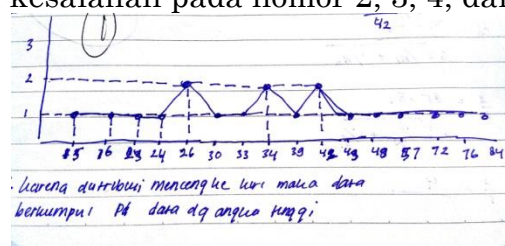 kesalahan pada nomor 2, 3, 4, dan
42
3
2
1
15 16 23 24 26 30 33 34 39 42 43 48 57 72 76 84
karena distribusi menceng ke kiri maka data
berkumpul pd data dg angka tinggi